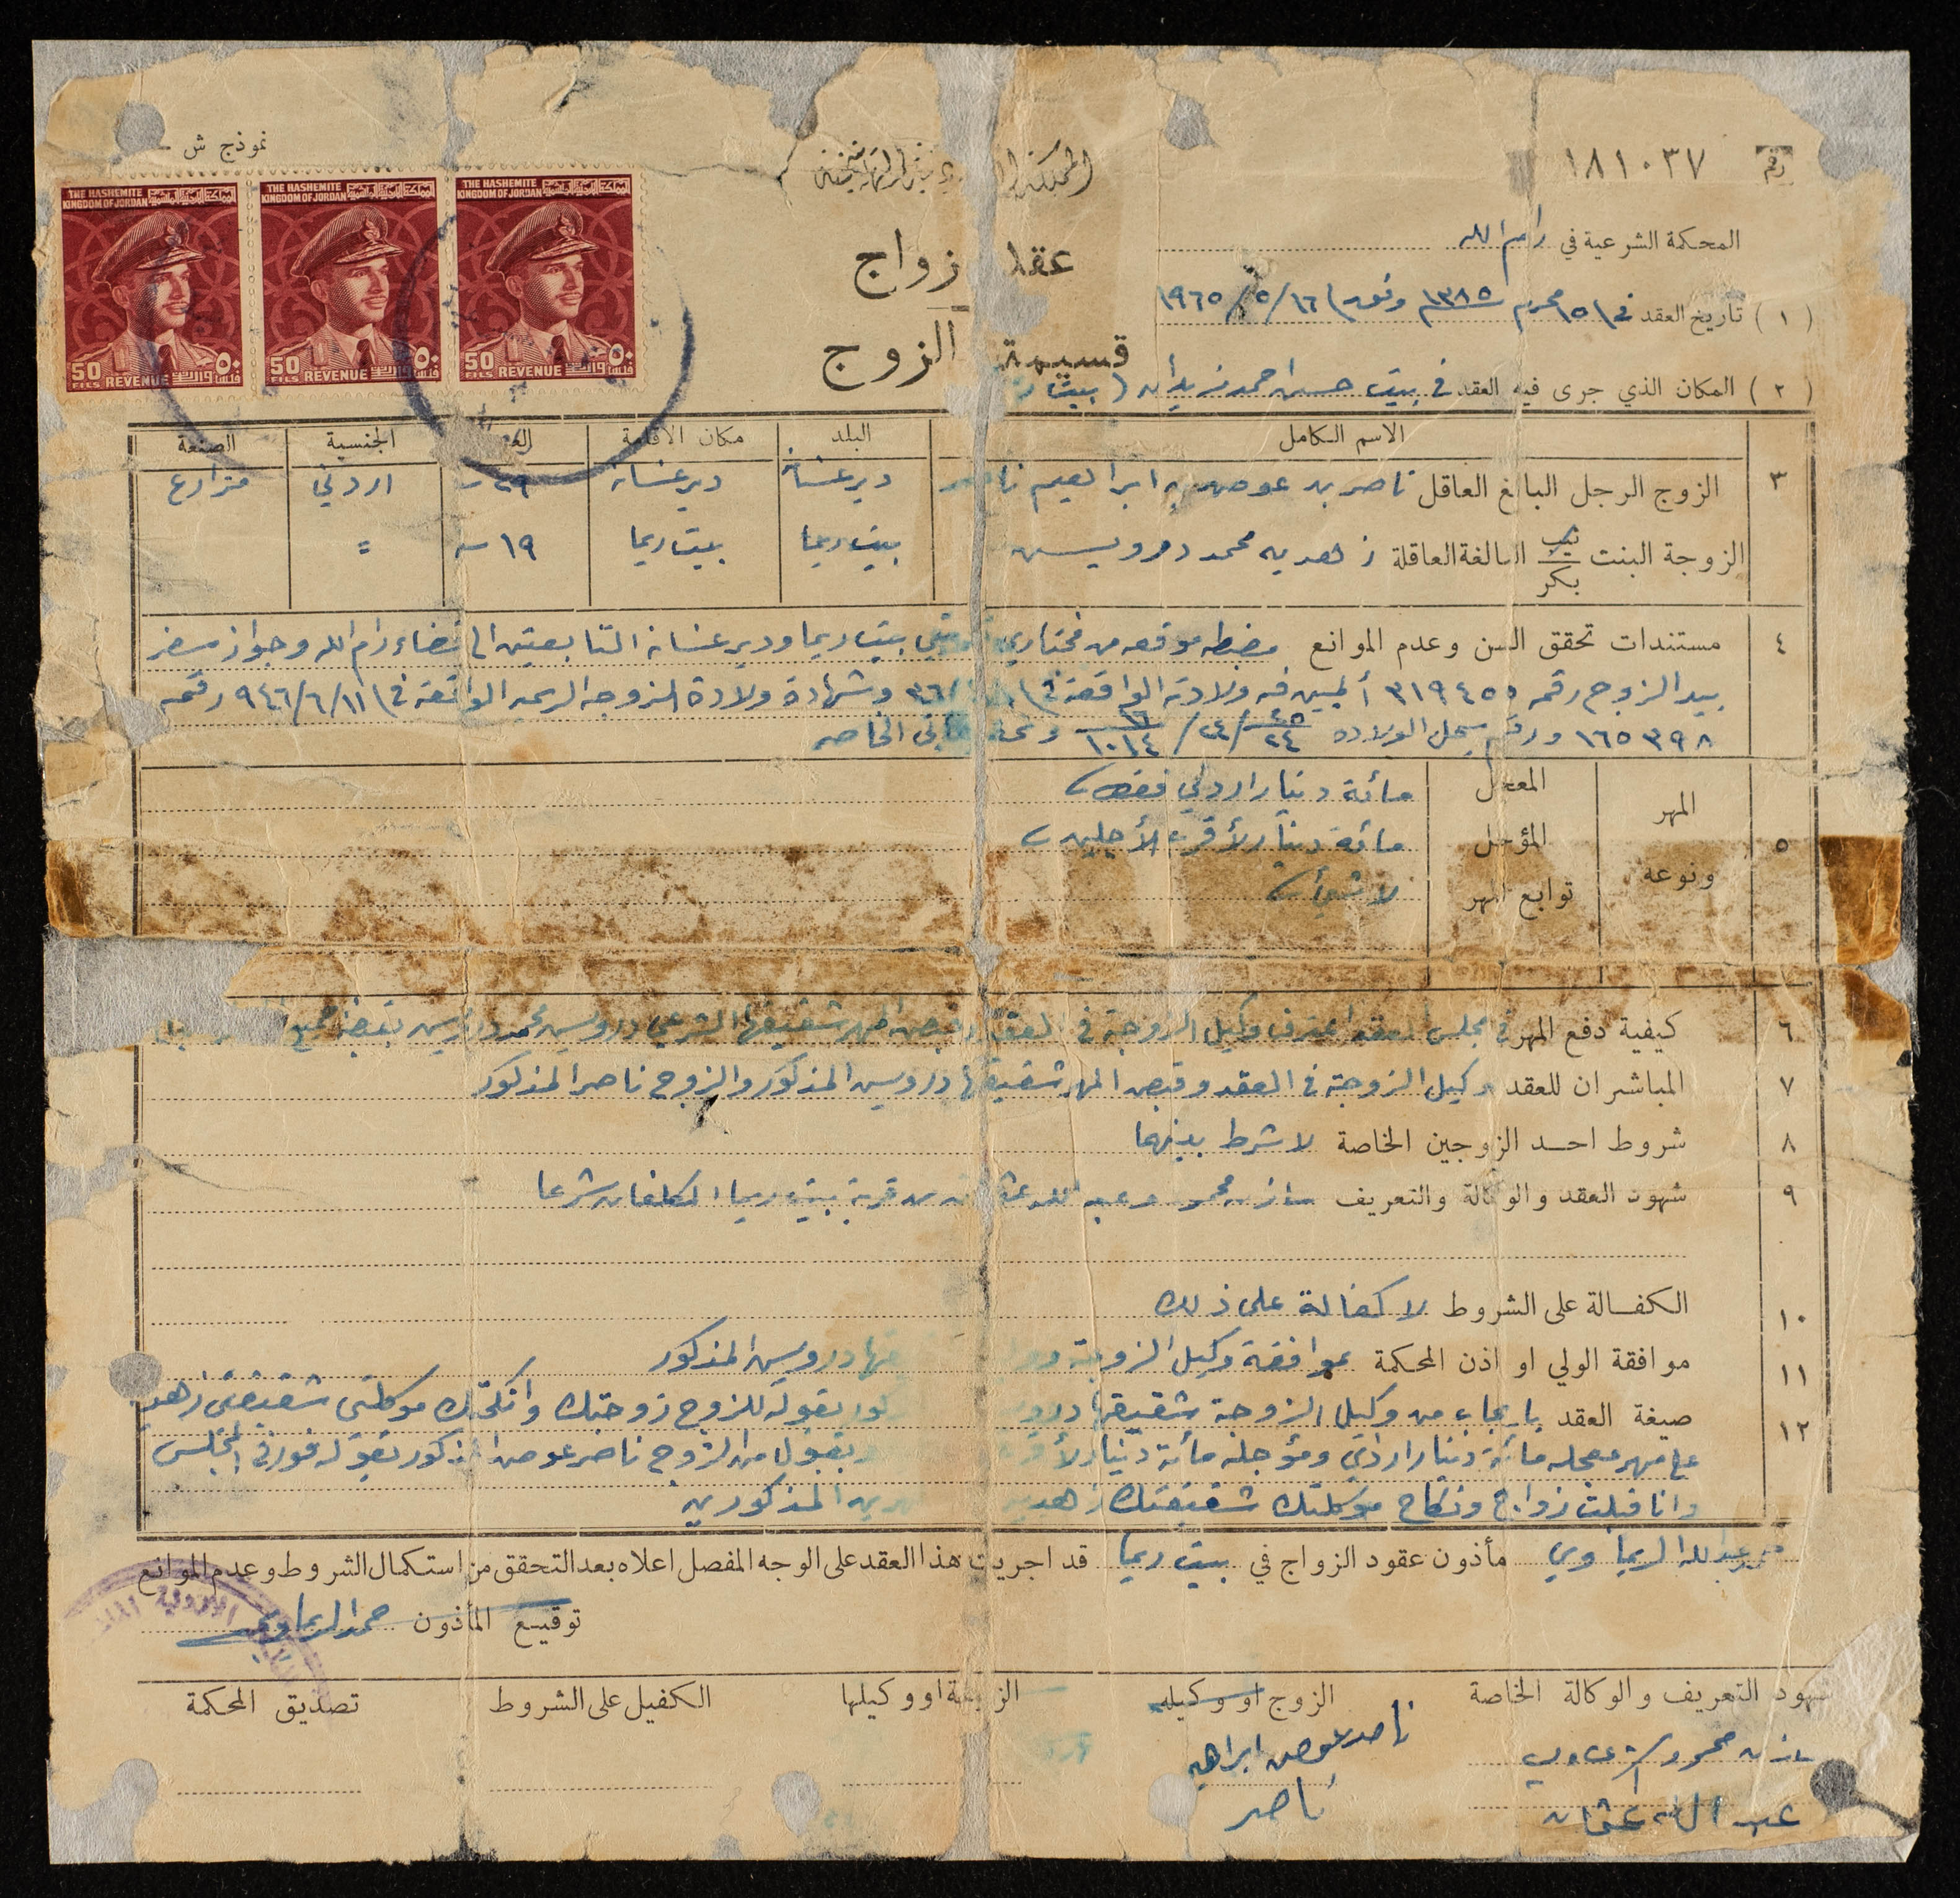 رقم ١٨١٠٣٧
نموذج ش
THE HASHEMITE KINGDOM OF JORDAN المملكة الاردنية الهاشمية
50 FILS REVENUE ٥٠ فلسا
THE HASHEMITE KINGDOM OF JORDAN المملكة الاردنية الهاشمية
50 FILS REVENUE ٥٠ فلسا
THE HASHEMITE KINGDOM OF JORDAN المملكة الاردنية الهاشمية
50 FILS REVENUE ٥٠ فلسا
عقد زواج
قسيمة الزوج
المحكمة الشرعية في رام الله
(١) تاريخ العقد في ١٥ محرم ١٣٨٥ وفي ١٦/٥/١٩٦٥
(٢) المكان الذي جرى فيه العقد في بيت حسن احمد زيدان (بيت
الاسم الكامل البلد مكان الاقامة الجنسية الصنعة
٣ الزوج الرجل البالغ العاقل ناصر بن عوض ابراهيم ناصر ديرغسانه ديرغسانه ٢٩ اردني مزارع
الزوجة البنت ثيب بكر البالغة العاقلة زهديه محمد درويش بيت ريما بيت ريما ١٩ =
٤ مستندات تحقق السن وعدم الموانع مضبطه موقعه من مختاري بيت ريما وديرغسانه التابعتين الى قضاء رام الله وجواز سفر
بيد الزوج رقمه ٣١٩٤٥٥ المبين فيه ولادته الواقعة في ٣٦ وشهادة ولادة الزوجه الرسميه الواقعة في ١١/٦/٩٤٦ رقمه
١٦٥٣٩٨ ورقم سجل الولاده الخاصه
٥ المهر ونوعه
المعجل مائة دينار اردني فقط
المؤجل مائة دينار لأقرب الأجلين
توابع المهر لا شيء
٦ كيفية دفع المهر في مجلس العقد اعترف وكيل الزوجة في العقد وقبض المهر شقيقها الشرعي درويش محمد درويش بقبضه جميع
٧ المباشران للعقد وكيل الزوجة في العقد وقبض المهر شقيقها درويش المذكور والزوج ناصر المذكور
٨ شروط احد الزوجين الخاصة لا شرط بينهما
٩ شهود العقد والوكالة والتعريف محمود وعبد الله من قرية بيت ريما المكلفان شرعا
١٠ الكفالة على الشروط لا كفالة على ذلك
١١ موافقة الولي او اذن المحكمة بموافقة وكيل الزوجة درويش المذكور
١٢ صيغة العقد بايجاب من وكيل الزوجة شقيقها بقوله للزوج زوجتك وانكحتك موكلتي شقيقتي زهديه
على مهر معجله مائة دينار اردني ومؤجله مائة دينار لأقرب بقبول من الزوج ناصر عوض المذكور بقوله فورا في المجلس
وانا قبلت زواج ونكاح موكلتك شقيقتك زهديه المذكورين
عبدالله الريماوي مأذون عقود الزواج في بيت ريما قد اجريت هذا العقد على الوجه المفصل اعلاه بعد التحقق من استكمال الشروط وعدم الموانع
توقيع المأذون محمد الريماوي
شهود التعريف والوكالة الخاصة الزوج او وكيله الزوجة او وكيلها الكفيل على الشروط تصديق المحكمة
ناصر عوض ابراهيم
ناصر
عبد الله عثمان